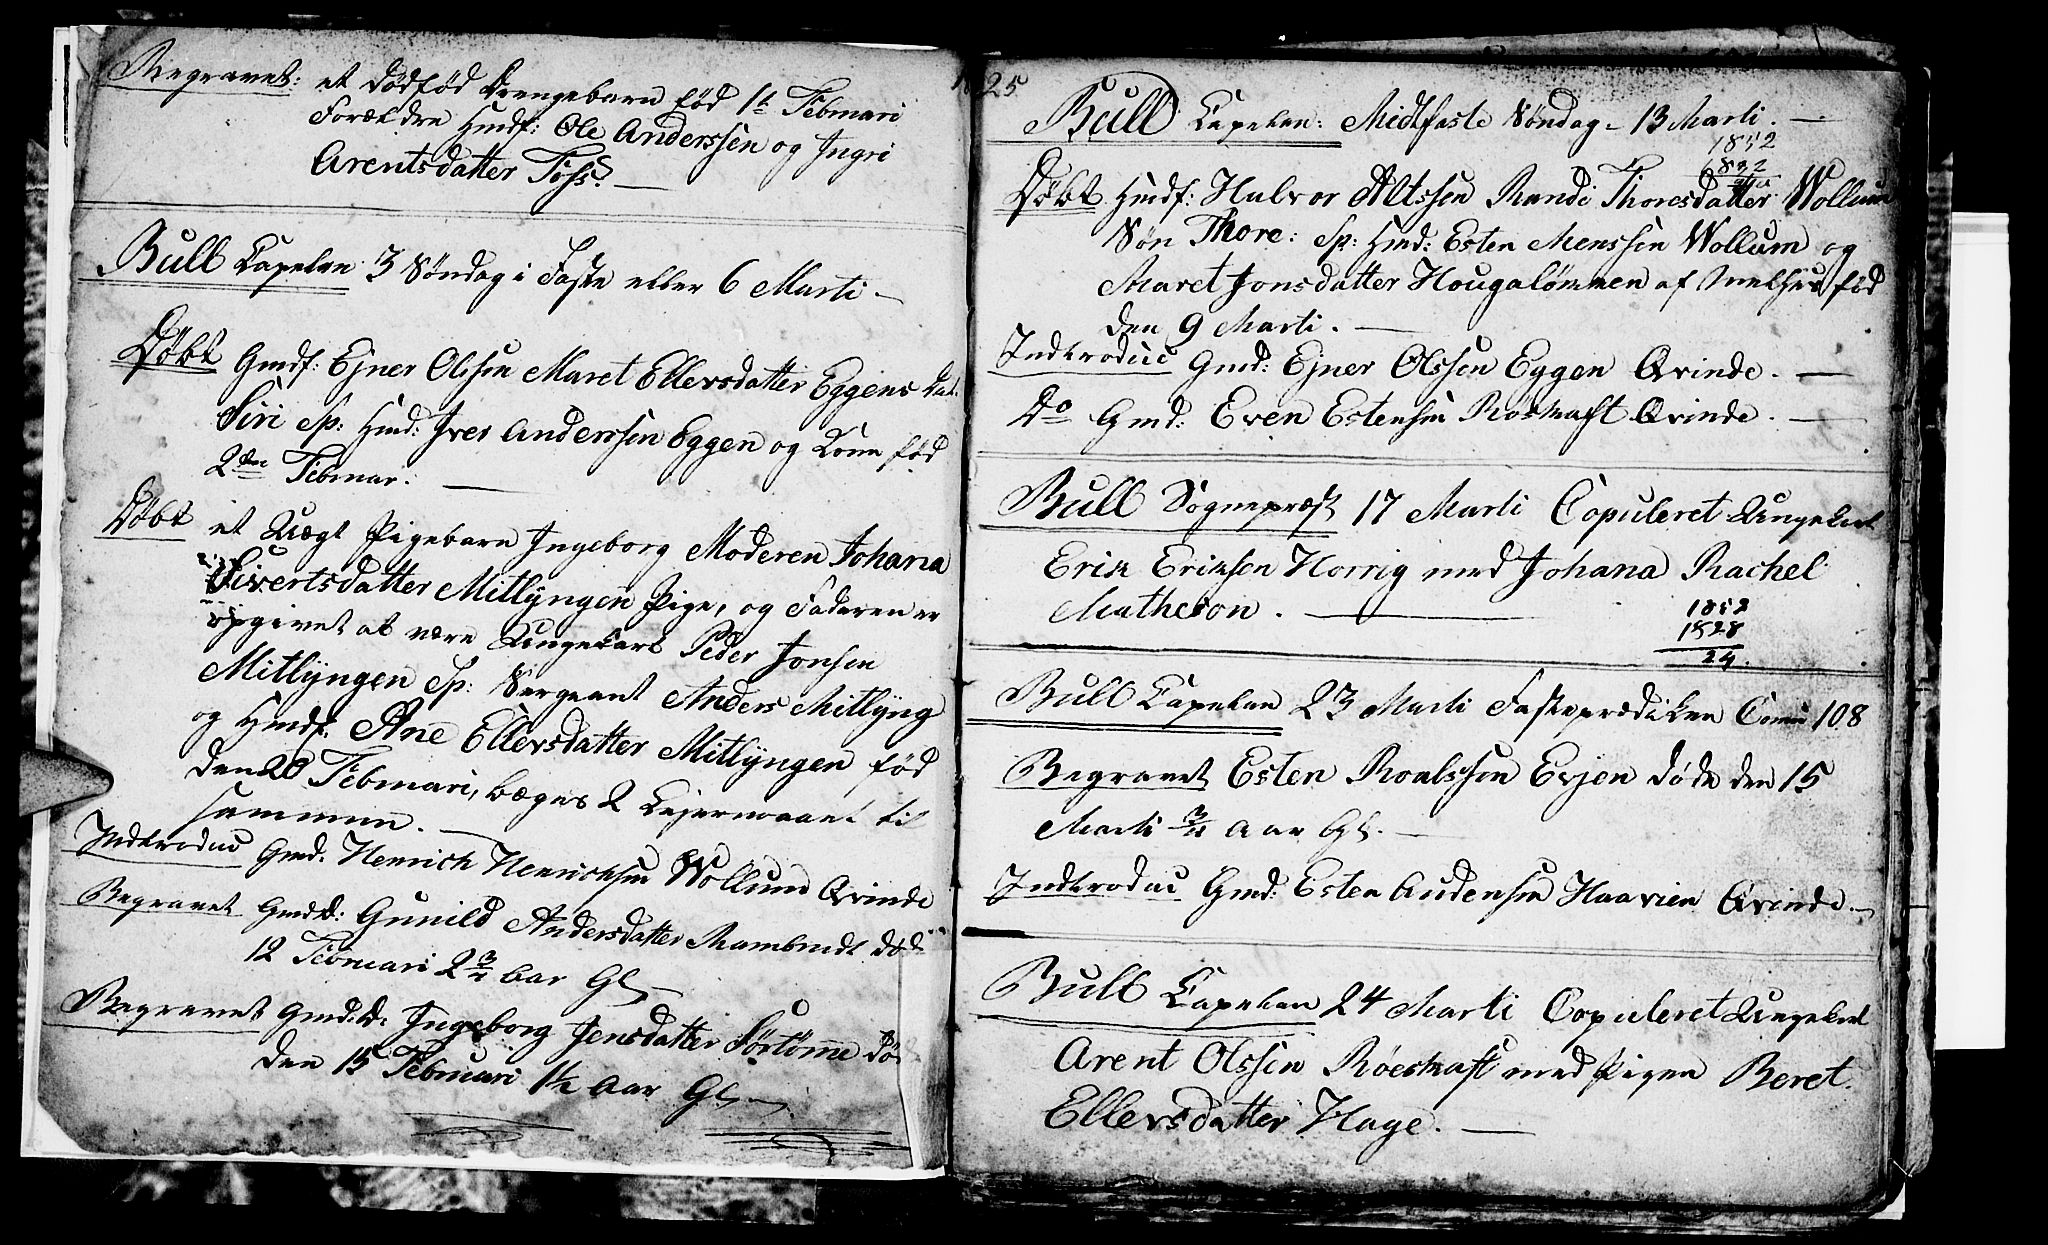 Begravet: et dødfød Drengebarn fød 1t Februari
Forældre Hmdf: Ole Anderssen og Ingri
Arentsdatter Foss.
Bull Capelan 3 Søndag i Faste eller 6 Marti
Døbt Gmdf: Ejner Olssen Maret Ellevsdatter Eggens Dat:
Siri Sp: Hmd: Iver Anderssen Eggen og Kone fød
2den Februar.
Døbt et Uægt Pigebarn Ingeborg Moderen Johana
Sivertsdatter Mitlyngen Pige, og Faderen er
opgivet at være Ungekarl Peder Jonsen
Mitlyngen Sp: Sergeant Anders Mitlyng
og Hmdf: Ane Ellevsdatter Mitlyngen fød
den 20 Februari, begges 2 Lejermaael til
sammen.
Indtroduc Gmd. Henrich Henrichsen Wollum Qvinde
Begravet GmdD: Gunild Andersdatter Rambraut død
12 Februari 2 3/4 Aar Gl
Begravet Gmd:D: Ingeborg Jensdatter Sørtømme dø
den 15 Februari 1½ Aar Gl
1825
Bull Capelan: Midtfaste Søndag 13 Marti.
1852
Døbt Hmdf: Halvor Altssen Randi Thoresdatter Wollum
Søn Thore: Sp: Hmd: Esten Monssen Wollum og
Maret Jonsdatter Hougalømmen af Melhus fød
den 9 Marti.
Indtroduc Gmd: Ejner Olssen Eggen Qvinde.
Do Gmd: Even Estensen Røskaft Qvinde.
Bull Sognepræst 17 Marti Copuleret Ungekarl
Erik Eriksen Horrig med Johana Rachel
Matheson.
1852
1828
24.
Bull Capelan 23 Marti Fasteprædiken Comu 108
Begravet Esten Roalssen Evjen døde den 15
Marti 3/4 Aar Gl.
Indtroduc Gmd: Esten Andensen Haavien Qvinde
Bull Capelan 24 Marti Copuleret Ungekarl
Arent Olssen Røeskaft med Pigen Beret
Ellevsdatter Hage.